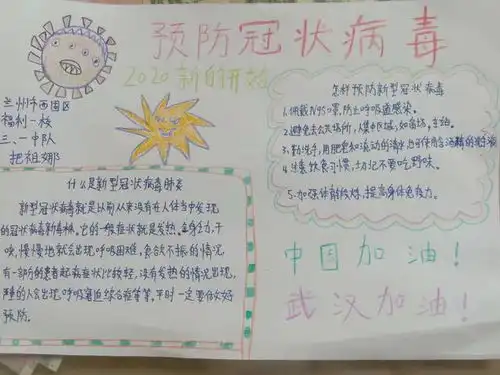 预防冠状病毒
2020新的开始
兰州市西固区
福利一校
三.一中队
把祖娜
什么是新型冠状病毒肺炎
新型冠状病毒就是以前从来没有在人体当中发现
的冠状病毒新毒株。它的一般症状就是发热。全身乏力,干
咳,慢慢地就会出现呼吸困难,食欲不振的情况,
有一部分的患者起病症状比较轻,没有发热的情况出现,
严重的人会出现呼吸窘迫综合症等等,平时一定要做好
预防。
怎样预防新型冠状病毒
1.佩戴N95口罩,防止呼吸道感染。
2.避免去公共场所,人集中区域,如商场,车站。
3.勤洗手,用肥皂和流动的清水
4.注意饮食习惯,切记不要吃野味。
5.加强体育锻炼,提高身体免疫力。
中国加油!
武汉加油!